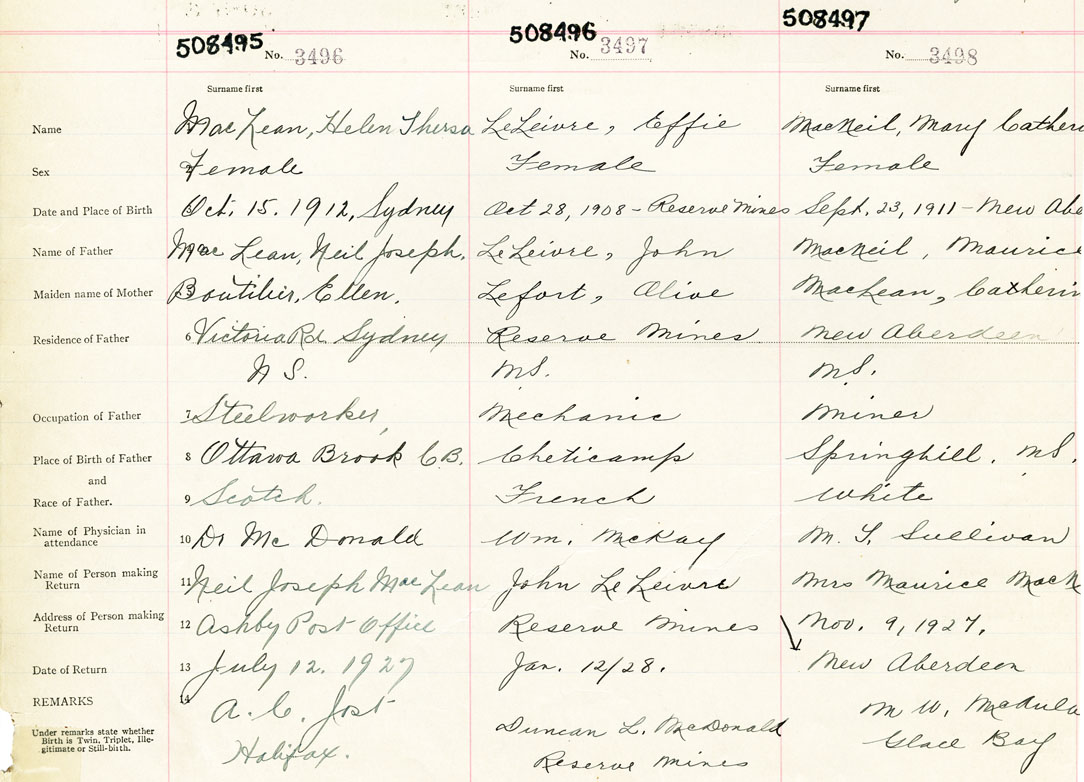 508495 508496 508497
No. 3496 No. 3497 No. 3498
Surname first Surname first Surname first
Name MacLean, Helen Thersa LeLeivre, Effie MacNeil, Mary Cather
Sex 2 Female Female Female
Date and Place of Birth Oct. 15. 1912, Sydney Oct 28, 1908 - Reserve Mines Sept. 23, 1911 - New Abe
Name of Father MacLean, Neil Joseph. LeLeivre, John MacNeil, Maurice
Maiden name of Mother 5 Boutilier, Ellen. Lefort, Olive MacLean, Catherin
Residence of Father 6 Victoria Rd Sydney Reserve Mines New Aberdeen
N S. NS. NS.
Occupation of Father 7 Steelworker, Mechanic Miner
Place of Birth of Father 8 Ottawa Brook C B. Cheticamp Springhill. NS.
and
Race of Father. 9 Scotch. French White
Name of Physician in attendance 10 Dr Mc Donald Wm. McKay M. T. Sullivan
Name of Person making Return 11 Neil Joseph MacLean John LeLeivre Mrs Maurice MacN
Address of Person making Return 12 Ashby Post Office Reserve Mines Nov. 9, 1927.
Date of Return 13 July 12. 1927 Jan. 12/28. New Aberdeen
REMARKS 14 A. C. Jost Duncan L. McDonald M W.
Under remarks state whether Birth is Twin, Triplet, Ille-gitimate or Still-birth. Halifax. Reserve Mines Glace Bay